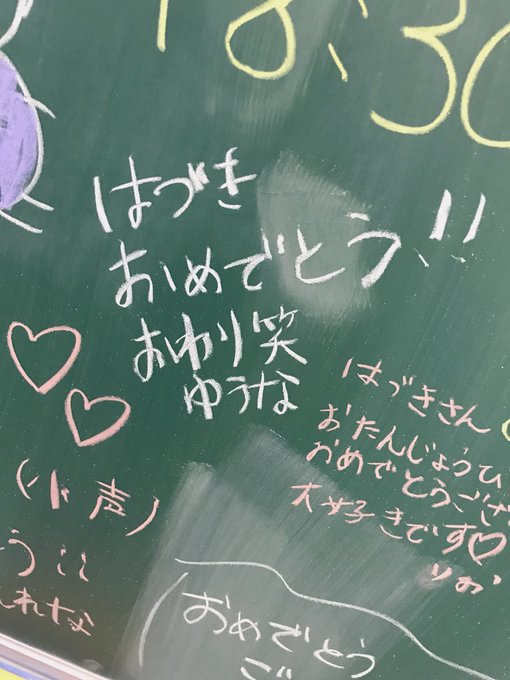 18:30
はづき
おめでとう!!
おわり笑
ゆうな
はづきさん
おたんじょうひ
おめでとうござ
大好きです♡
りお
(小声)
うここ
れな
おめでとう
ご